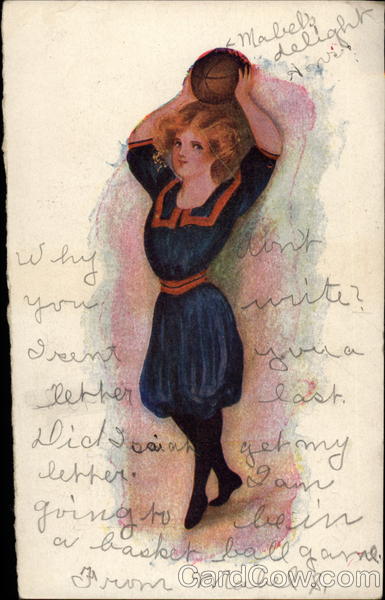 Mabel's
delight
Why don't
you write?
I sent you a
letter last.
Did Isaiah get my
letter. I am
going to be in
a basket ball game.
From Mabel
CardCow.com